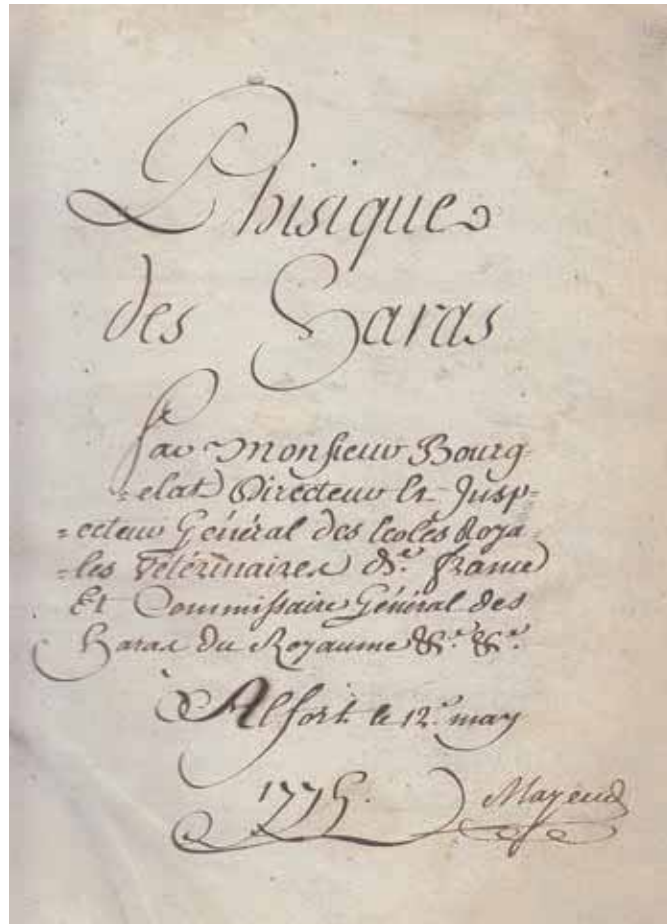 Phisique
des Haras
Par Monsieur Bourg=
=elat Directeur et Insp=
=ecteur Général des Ecoles Roya=
=les Vétérinaires de france
Et Commissaire Général des
Haras du Royaume &c. &c.
Alfort le 12.e may
1775.